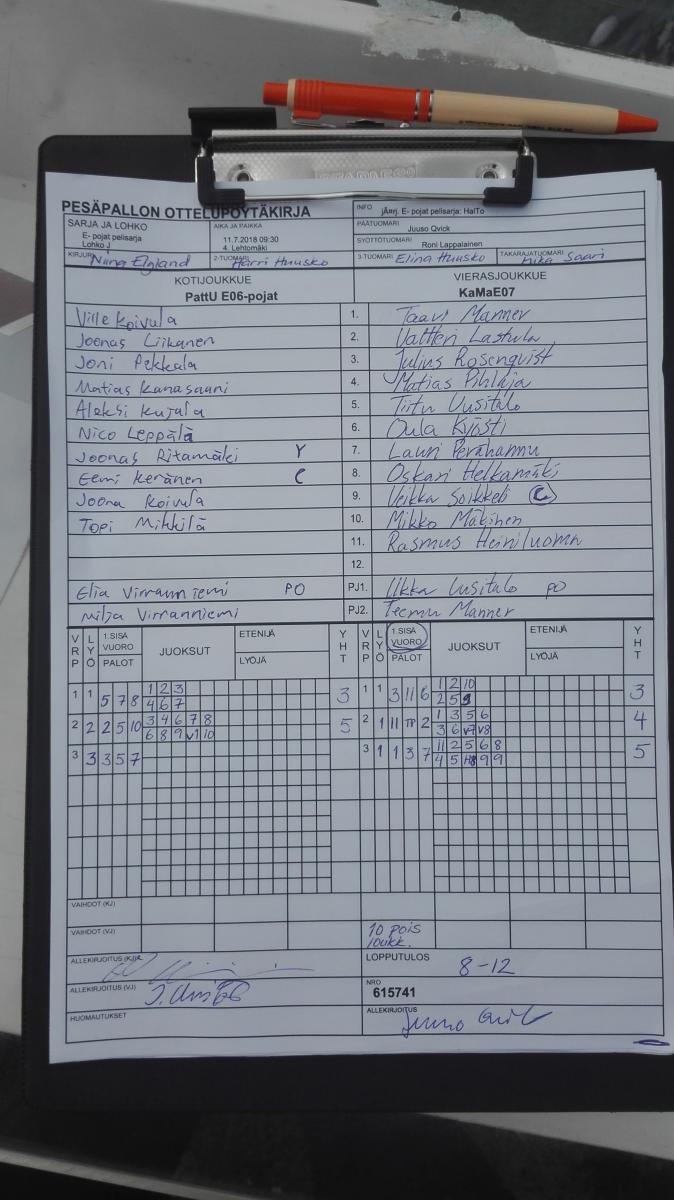 PESÄPALLON OTTELUPÖYTÄKIRJA
INFO
jÄrrj. E- pojat pelisarja: HalTo
SARJA JA LOHKO
E- pojat pelisarja
Lohko J
AIKA JA PAIKKA
11.7.2018 09:30
4. Lehtomäki
PÄÄTUOMARI
Juuso Qvick
SYÖTTÖTUOMARI
Roni Lappalainen
KIRJURI
2-TUOMARI Harri Huusko
3-TUOMARI Elina Huusko
TAKARAJATUOMARI Mika Saari
KOTIJOUKKUE
PattU E06-pojat
VIERASJOUKKUE
KaMaE07
Ville Koivula 1. Taavi Manner
Joonas Liikanen 2. Valtteri
Joni Pekkala 3. Julius Rosenqvist
Matias Kanasaari 4. Matias Pihlaja
Aleksi Kujala 5. Uusitalo
Nico Leppälä 6. Oula Kyösti
Joonas Ritamäki Y 7. Lauri Perähannu
Eemi Keränen C 8. Oskari Helkamäki
Joona Koivula 9. Veikka Soikkeli C
Topi Mikkilä 10. Mikko Mäkinen
11. Rasmus Heiniluoma
12.
Elia Virranniemi PO PJ1. Ilkka Uusitalo PO
Milja Virranniemi PJ2. Teemu Manner
VRP LYÖ 1.SISÄ VUORO PALOT JUOKSUT ETENIJÄ LYÖJÄ YHT VRP LYÖ 1.SISÄ VUORO PALOT JUOKSUT ETENIJÄ LYÖJÄ YHT
1 1 5 7 8 1 2 3 3 1 1 3 11 6 1 2 10 3
4 6 7 2 5 9
2 2 2 5 10 3 4 6 7 8 5 2 1 11 TP 2 1 3 5 6 4
6 8 9 V1 10 3 6 V7 V8
3 3 3 5 7 3 1 1 3 7 11 2 5 6 8 5
4 5 9 9
VAIHDOT (KJ)
VAIHDOT (VJ)
10 pois
loukk.
ALLEKIRJOITUS (KJ)
LOPPUTULOS
8-12
ALLEKIRJOITUS (VJ)
NRO
615741
HUOMAUTUKSET
ALLEKIRJOITUS